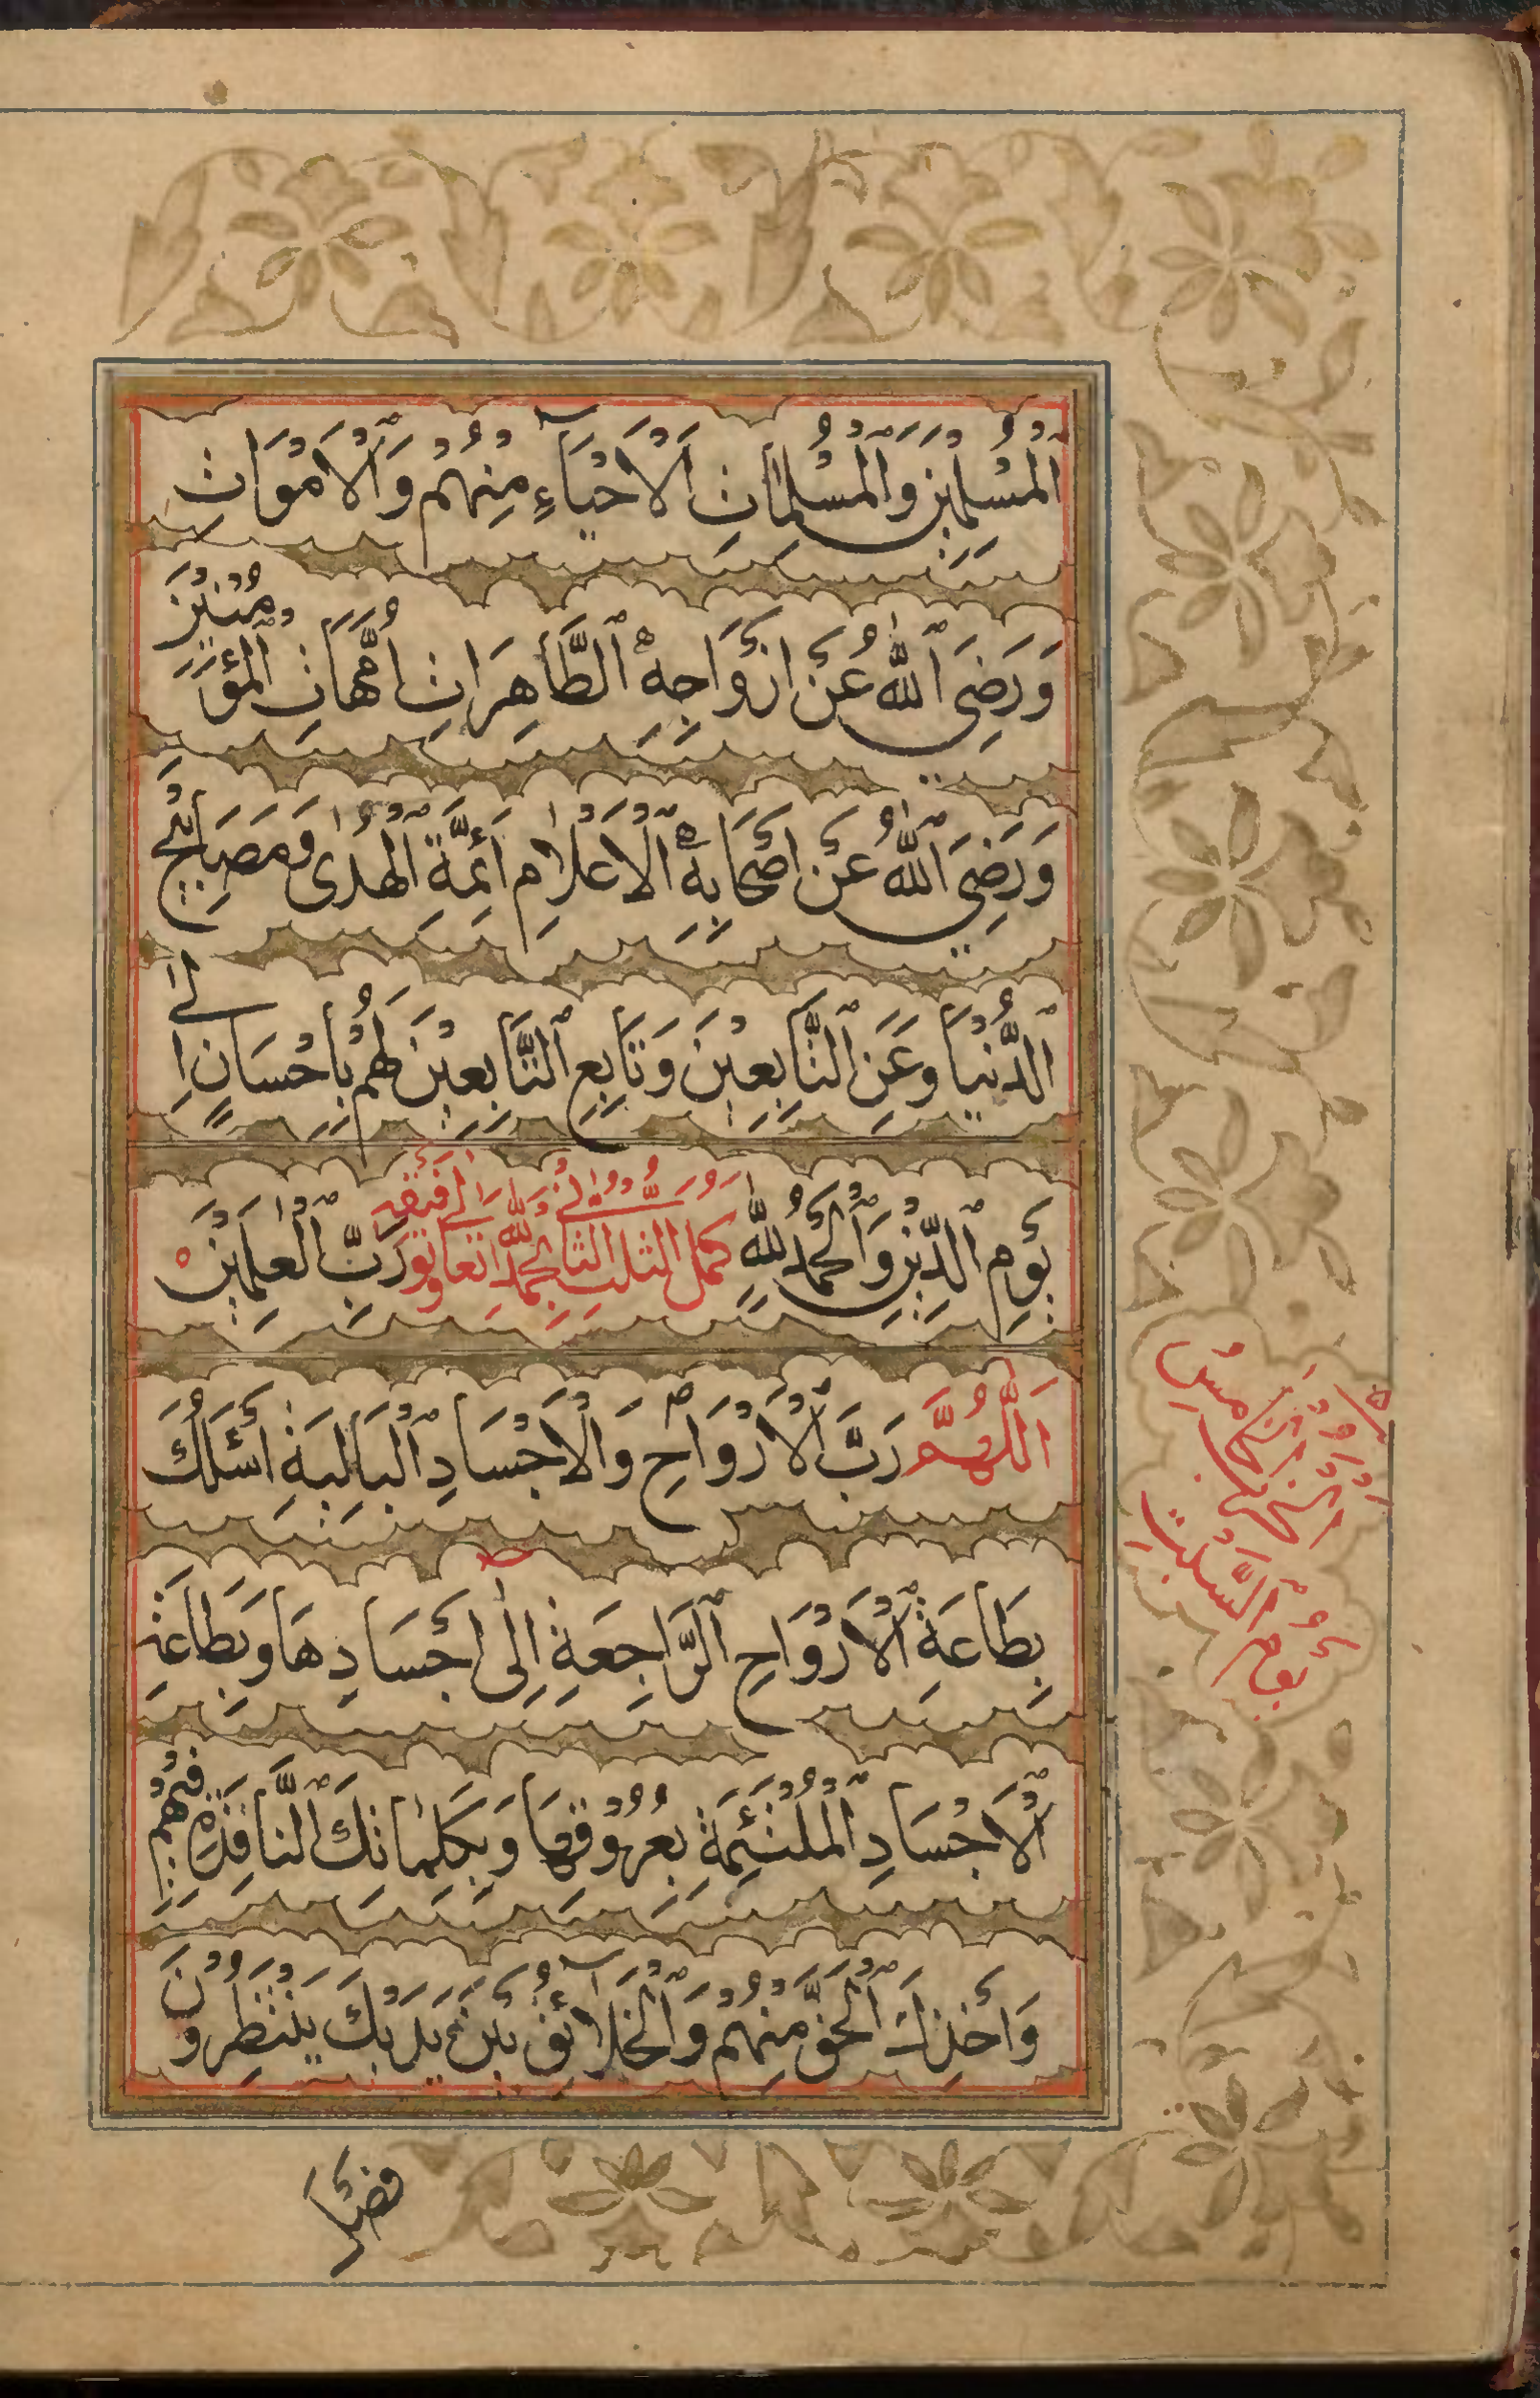 اَلْمُسْلِمِيْنَ وَالْمُسْلِمَاتِ اَلْاَحْيَآءِ مِنْهُمْ وَالْاَمْوَاتِ
وَرَضِيَ اللّٰهُ عَنْ اَزْوَاجِهِ الطَّاهِرَاتِ اُمَّهَاتِ الْمُؤْمِنِيْنَ
وَرَضِيَ اللّٰهُ عَنْ اَصْحَابِهِ الْاَعْلَامِ اَئِمَّةِ الْهُدٰى وَمَصَابِيْحِ
الدُّنْيَا وَعَنِ التَّابِعِيْنَ وَتَابِعِ التَّابِعِيْنَ لَهُمْ بِاِحْسَانٍ اِلٰى
يَوْمِ الدِّيْنِ وَالْحَمْدُ لِلّٰهِ رَبِّ الْعٰلَمِيْنَ
كمل الثلث الثاني بحمد الله تعالى وتوفيقه
اَللّٰهُمَّ رَبَّ الْاَرْوَاحِ وَالْاَجْسَادِ الْبَالِيَةِ اَسْئَلُكَ
بِطَاعَةِ الْاَرْوَاحِ الرَّاجِعَةِ اِلٰى اَجْسَادِهَا وَبِطَاعَةِ
الْاَجْسَادِ الْمُلْتَئِمَةِ بِعُرُوْقِهَا وَبِكَلِمَاتِكَ النَّافِذَةِ فِيْهِمْ
وَاَخْذِكَ الْحَقَّ مِنْهُمْ وَالْخَلَآئِقُ بَيْنَ يَدَيْكَ يَنْتَظِرُوْنَ
الحزب الخامس
يوم السبت
فصل